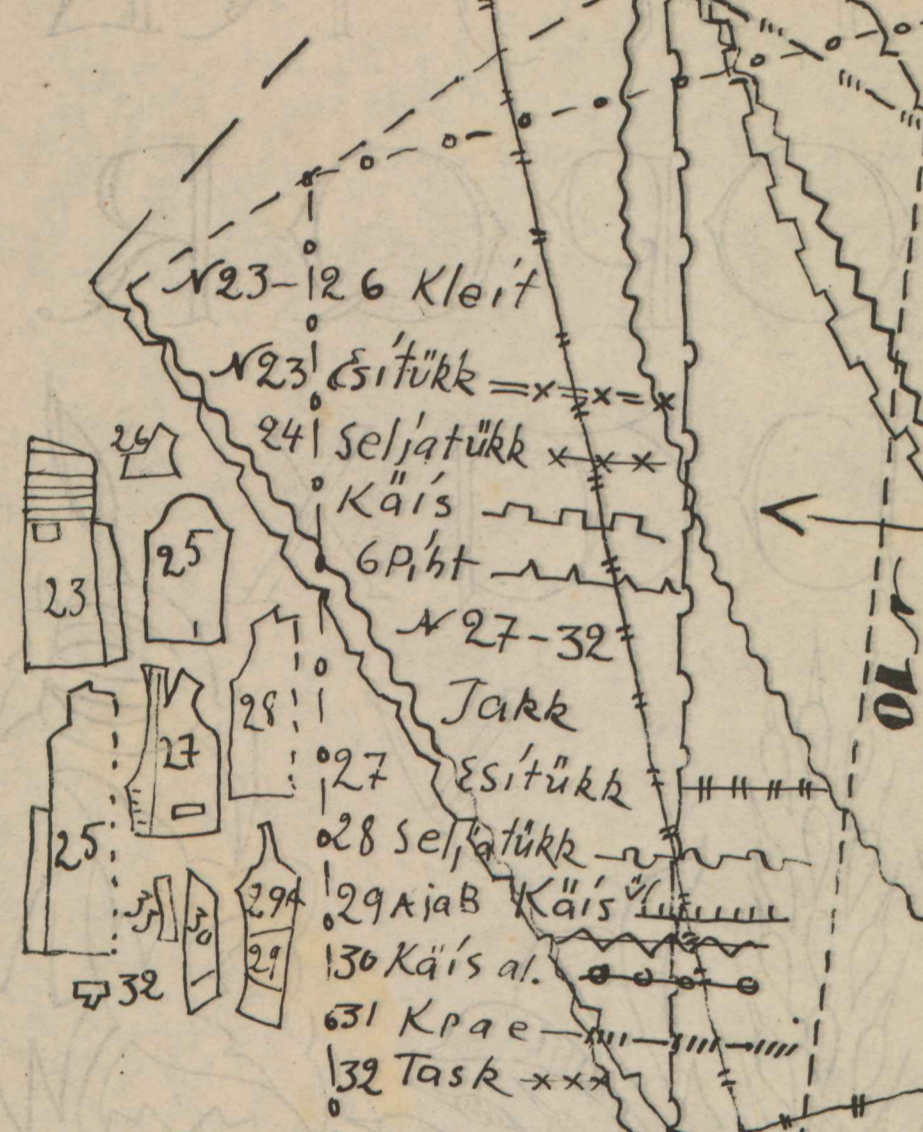 N23-26 Kleit
N23 Esitükk
24 Seljatükk
Käis
6 Piht
N 27-32
Jakk
27 Esitükk
28 Seljatükk
29 A ja B Käis ü
30 Käis al.
31 Krae
32 Task
26
23
25
28
27
25
29A
33
30
29
32
10